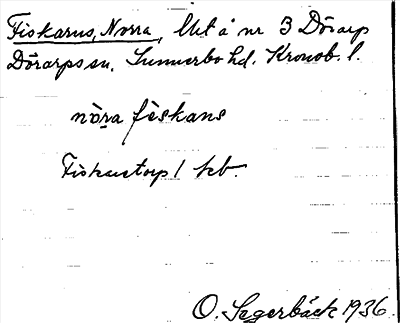 Fiskarns, Norra, Utå nr 3 Dörarp
Dörarps sn. Sunnerbo hd. Kronob. l.
nòra fèskans
Fiskarstorp / kb.
O. Segerbäck 1936.